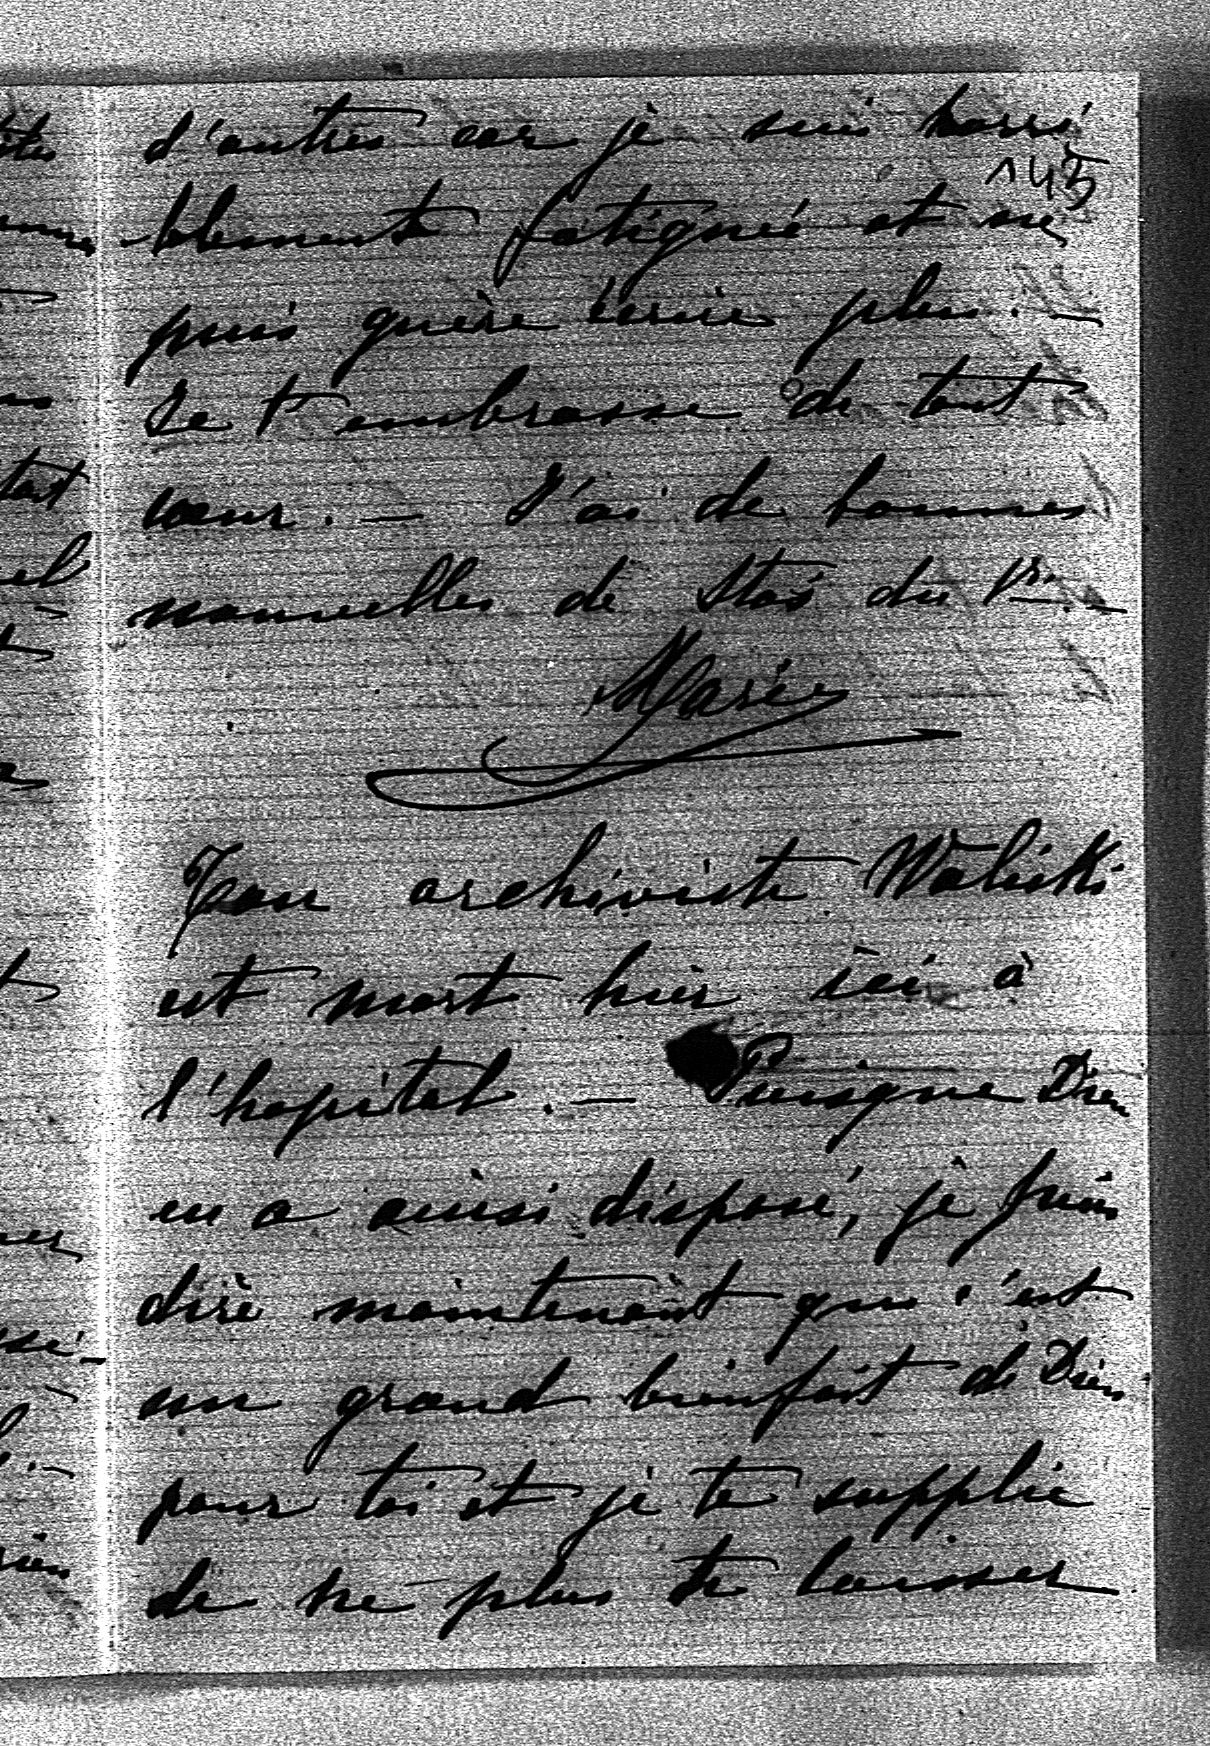 d'autres car je suis horri
145
blement fatiguée et ne
puis guère écrire plus. —
Je t'embrasse de tout
cœur. — J'ai de bonnes
nouvelles de Staś du 1r. —
Marie
Ton archiviste Walicki
est mort hier ici à
l'hopital. — Puisque Dieu
en a ainsi disposé, je puis
dire maintenant que c'est
un grand bienfait de Dieu
pour toi et je te supplie
de ne plus te laisser